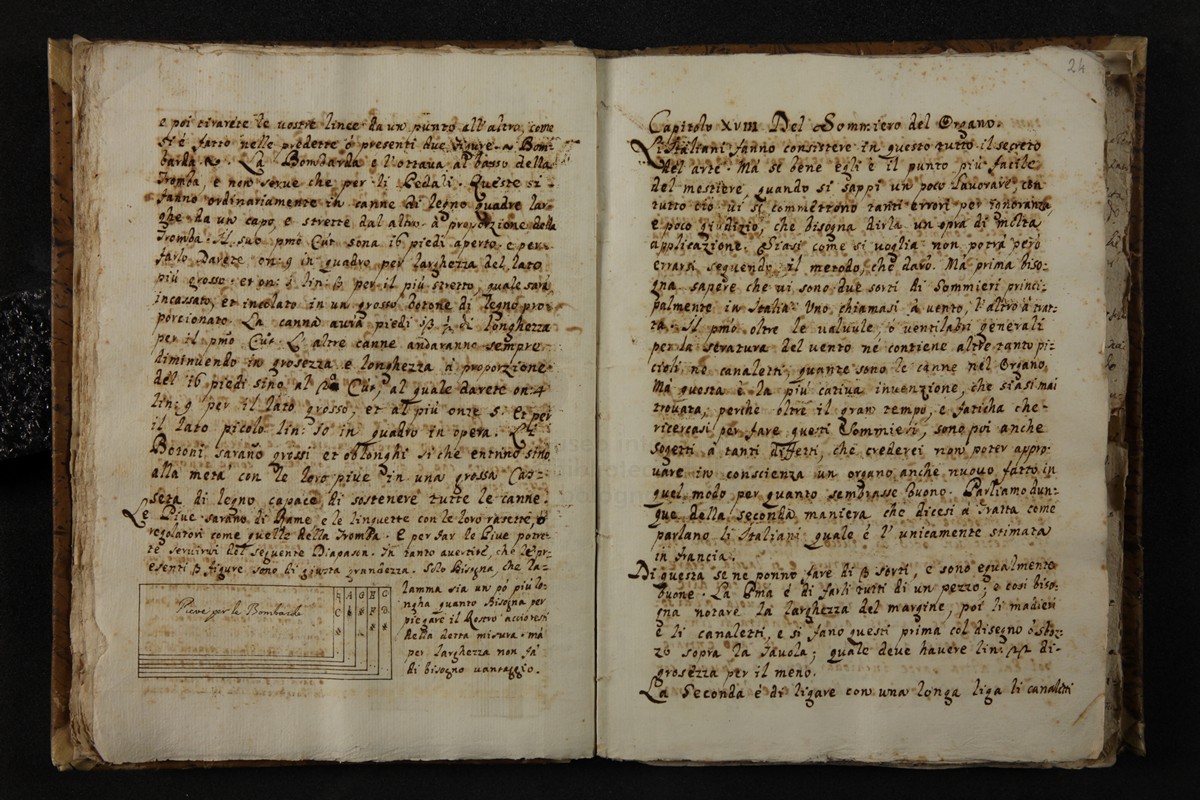 e poi tirarete le vostre linee da un punto all'altro, come
si è fatto nelle predette ò presenti due figure. Bom-
barda. La Bombarda e l'ottava al basso della
Tromba, e non serue che per li Pedali. Queste si
fanno ordinariamente in canne di legno quadre lar-
ghe da un capo, e strette dal altro à proporzione della
Tromba. Il sub pmo Cut sona 16 piedi aperto. e per
farlo Darete on: 9 in quadro per larghezza del lato
più grosso. et on: lin: per il più stretto, quale sarà
incassato, et incolato in un grosso botone di legno pro-
porcionato. La canna aurà piedi di longhezza
per il pmo Cut. L'altre canne andaranno sempre
diminuendo in grosezza e longhezza à proporzione
del 16 piedi sino al Cut, al quale darete on: 4
lin: 9 per il lato grosso, et al più onze 5. et per
il lato picolo lin: 10 in quadro in opera. Qli
Botoni sarano grossi et oblonghi si che entrino sino
alla metà con le loro piue in una grossa Cas-
seta di legno capace di sostenere tutte le canne.
Le Piue sarano di Rame, e le linguette con le loro rasette, ò
regolatori come quelle della Tromba. E per far le Piue potre-
te seruirui del seguente Diapason. In tanto auertite, che le pr-
esenti 3 figure sono di giusta grandezza. Solo bisogna, che la
lamma sia un pò più lo-
ngha quanto bisogna per
piegare il Rostro accioresti
della detta misura. mà
per larghezza non fà
di bisogno uantaggio.
Pieve per le Bombarde
A G G
C F D
24
Capitolo XVIII Del Sommiero del Organo.
Li Italiani fanno consistere in questo tutto il secreto
del arte. Mà se bene egli è il punto più facile
del mestiere, quando si sappi un poco lavorare, con
tutto ciò ui si commettono tanti errori per ignoranza
e poco giudizio, che bisogna dirla un opra di molta
applicazione. Siasi come si voglia non potrà però
errarsi seguendo il metodo, che darò. Mà prima biso-
gna sapere che ui sono due sorti di Sommieri princi-
palmente in Italia. Uno chiamasi à vento, l'altro à trat-
ta. Il pmo oltre le valuule, ò ventilabri generali
per la seratura del vento né contiene altre tanto pi-
cioli né canaletti, quante sono le canne nel Organo.
Mà questa è la più cativa invenzione, che siasi mai
trovata, perche oltre il gran tempo, e faticha che
ricercasi per fare questi Sommieri, sono poi anche
sogetti à tanti diffetti, che crederei non poter appro-
uare in conscienza un organo anche nuouo fatto in
quel modo per quanto sembrasse buono. Parliamo dun-
que della seconda maniera che dicesi à Tratta come
parlano li Italiani quale è l'unicamente stimata
in francia.
Di questa se ne ponno fare di 3 sorti, e sono egualmente
buone. La pma è di farli tutti di un pezzo; e così biso-
gna notare la larghezza del margine, poi li madieri
e li canaletti, e si fano questi prima col disegno ò sbo-
zo sopra la tauola; quale deve hauere lin: di
grosezza per il meno.
La Seconda è di ligare con una longa liga li canaletti